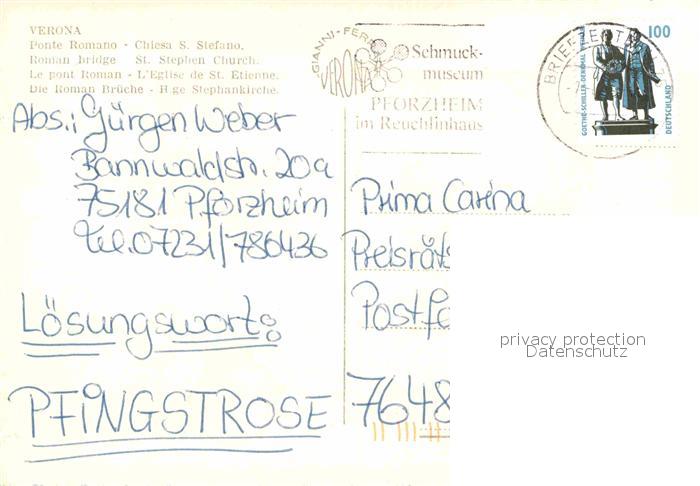 VERONA
Ponte Romano - Chiesa S. Stefano.
Roman bridge St. Stephen Church.
Le pont Roman - L'Eglise de St. Etienne.
Die Roman Brüche - H.ge Stephankirche.
GIANNI-FER
VERONA
Schmuck-
museum
PFORZHEIM
im Reuchlinhaus
BRIEFZENTRUM
100
GOETHE-SCHILLER-DENKMAL WEIMAR
DEUTSCHLAND
Abs.: Gürgen Weber
Bannwaldstr. 20a
75181 Pforzheim
Tel. 07231/786436
Lösungswort:
PFINGSTROSE
Prima Carina
Preisräts
Postfa
7648
privacy protection
Datenschutz